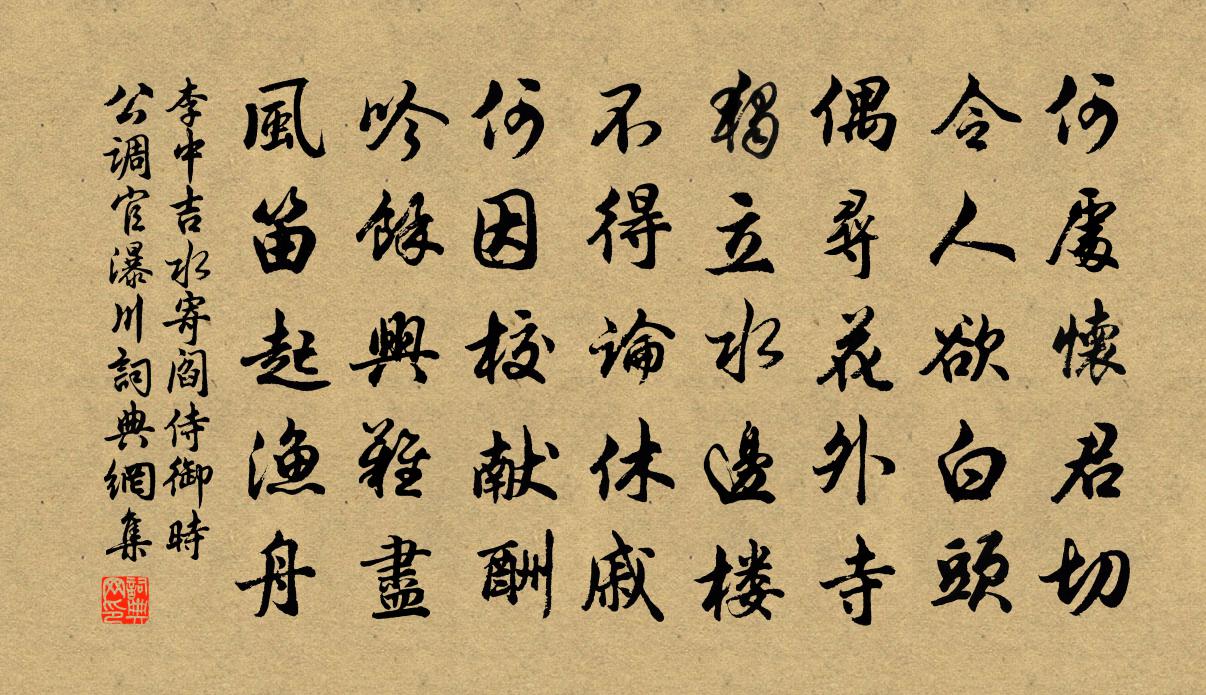 何處懷君切
令人欲白頭
偶尋花外寺
獨立水邊樓
不得論休戚
何因校献酬
吟餘興難盡
風笛起漁舟
李中吉水寄阎侍御時
公调官瀑川詞典網集
詞典
网印